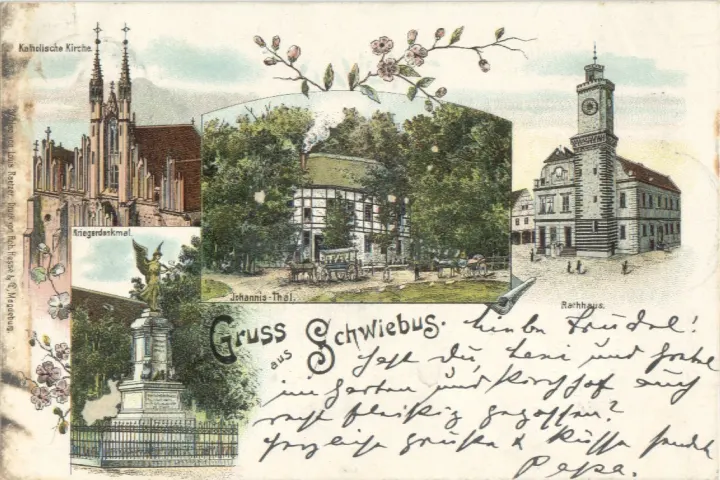 Katholische Kirche.
Kriegerdenkmal.
Johannis-Thal.
Rathhaus.
Gruss
aus
Schwiebus.
Lieber Trudel!
Hast Du, Leni und Grete
im Garten und Kirchhof auch
recht fleißig gegossen?
Herzliche Grüße & Küsse sendet
Papa.